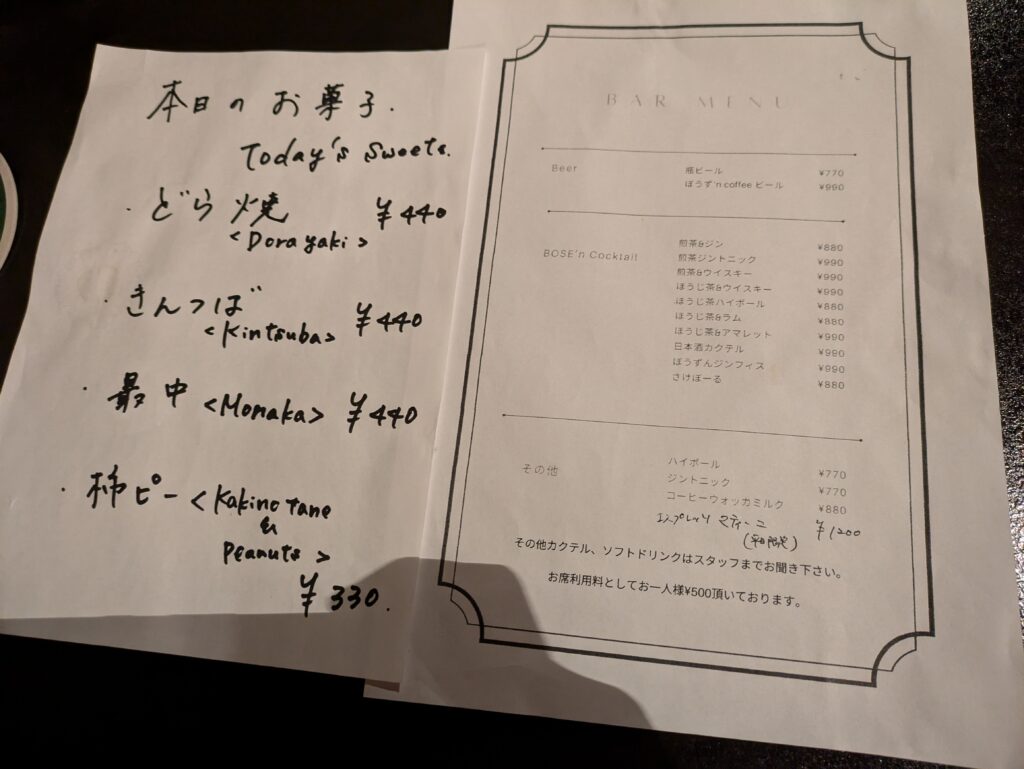 本日のお菓子.
Today's Sweets.
・どら焼 ¥440
<Dorayaki>
・きんつば ¥440
<Kintsuba>
・最中 <Monaka> ¥440
・柿ピー <Kakino tane
&
Peanuts>
¥330.
BAR MENU
Beer
瓶ビール ¥770
ぼうず'n coffee ビール ¥990
BOSE'n Cocktail
煎茶&ジン ¥880
煎茶ジントニック ¥990
煎茶&ウイスキー ¥990
ほうじ茶&ウイスキー ¥990
ほうじ茶ハイボール ¥880
ほうじ茶&ラム ¥880
ほうじ茶&アマレット ¥990
日本酒カクテル ¥990
ぼうずんジンフィス ¥990
さけぼーる ¥880
その他
ハイボール ¥770
ジントニック ¥770
コーヒーウォッカミルク ¥880
エスプレッソ マティーニ ¥1200
その他カクテル、ソフトドリンクはスタッフまでお聞き下さい。
お席利用料としてお一人様¥500頂いております。